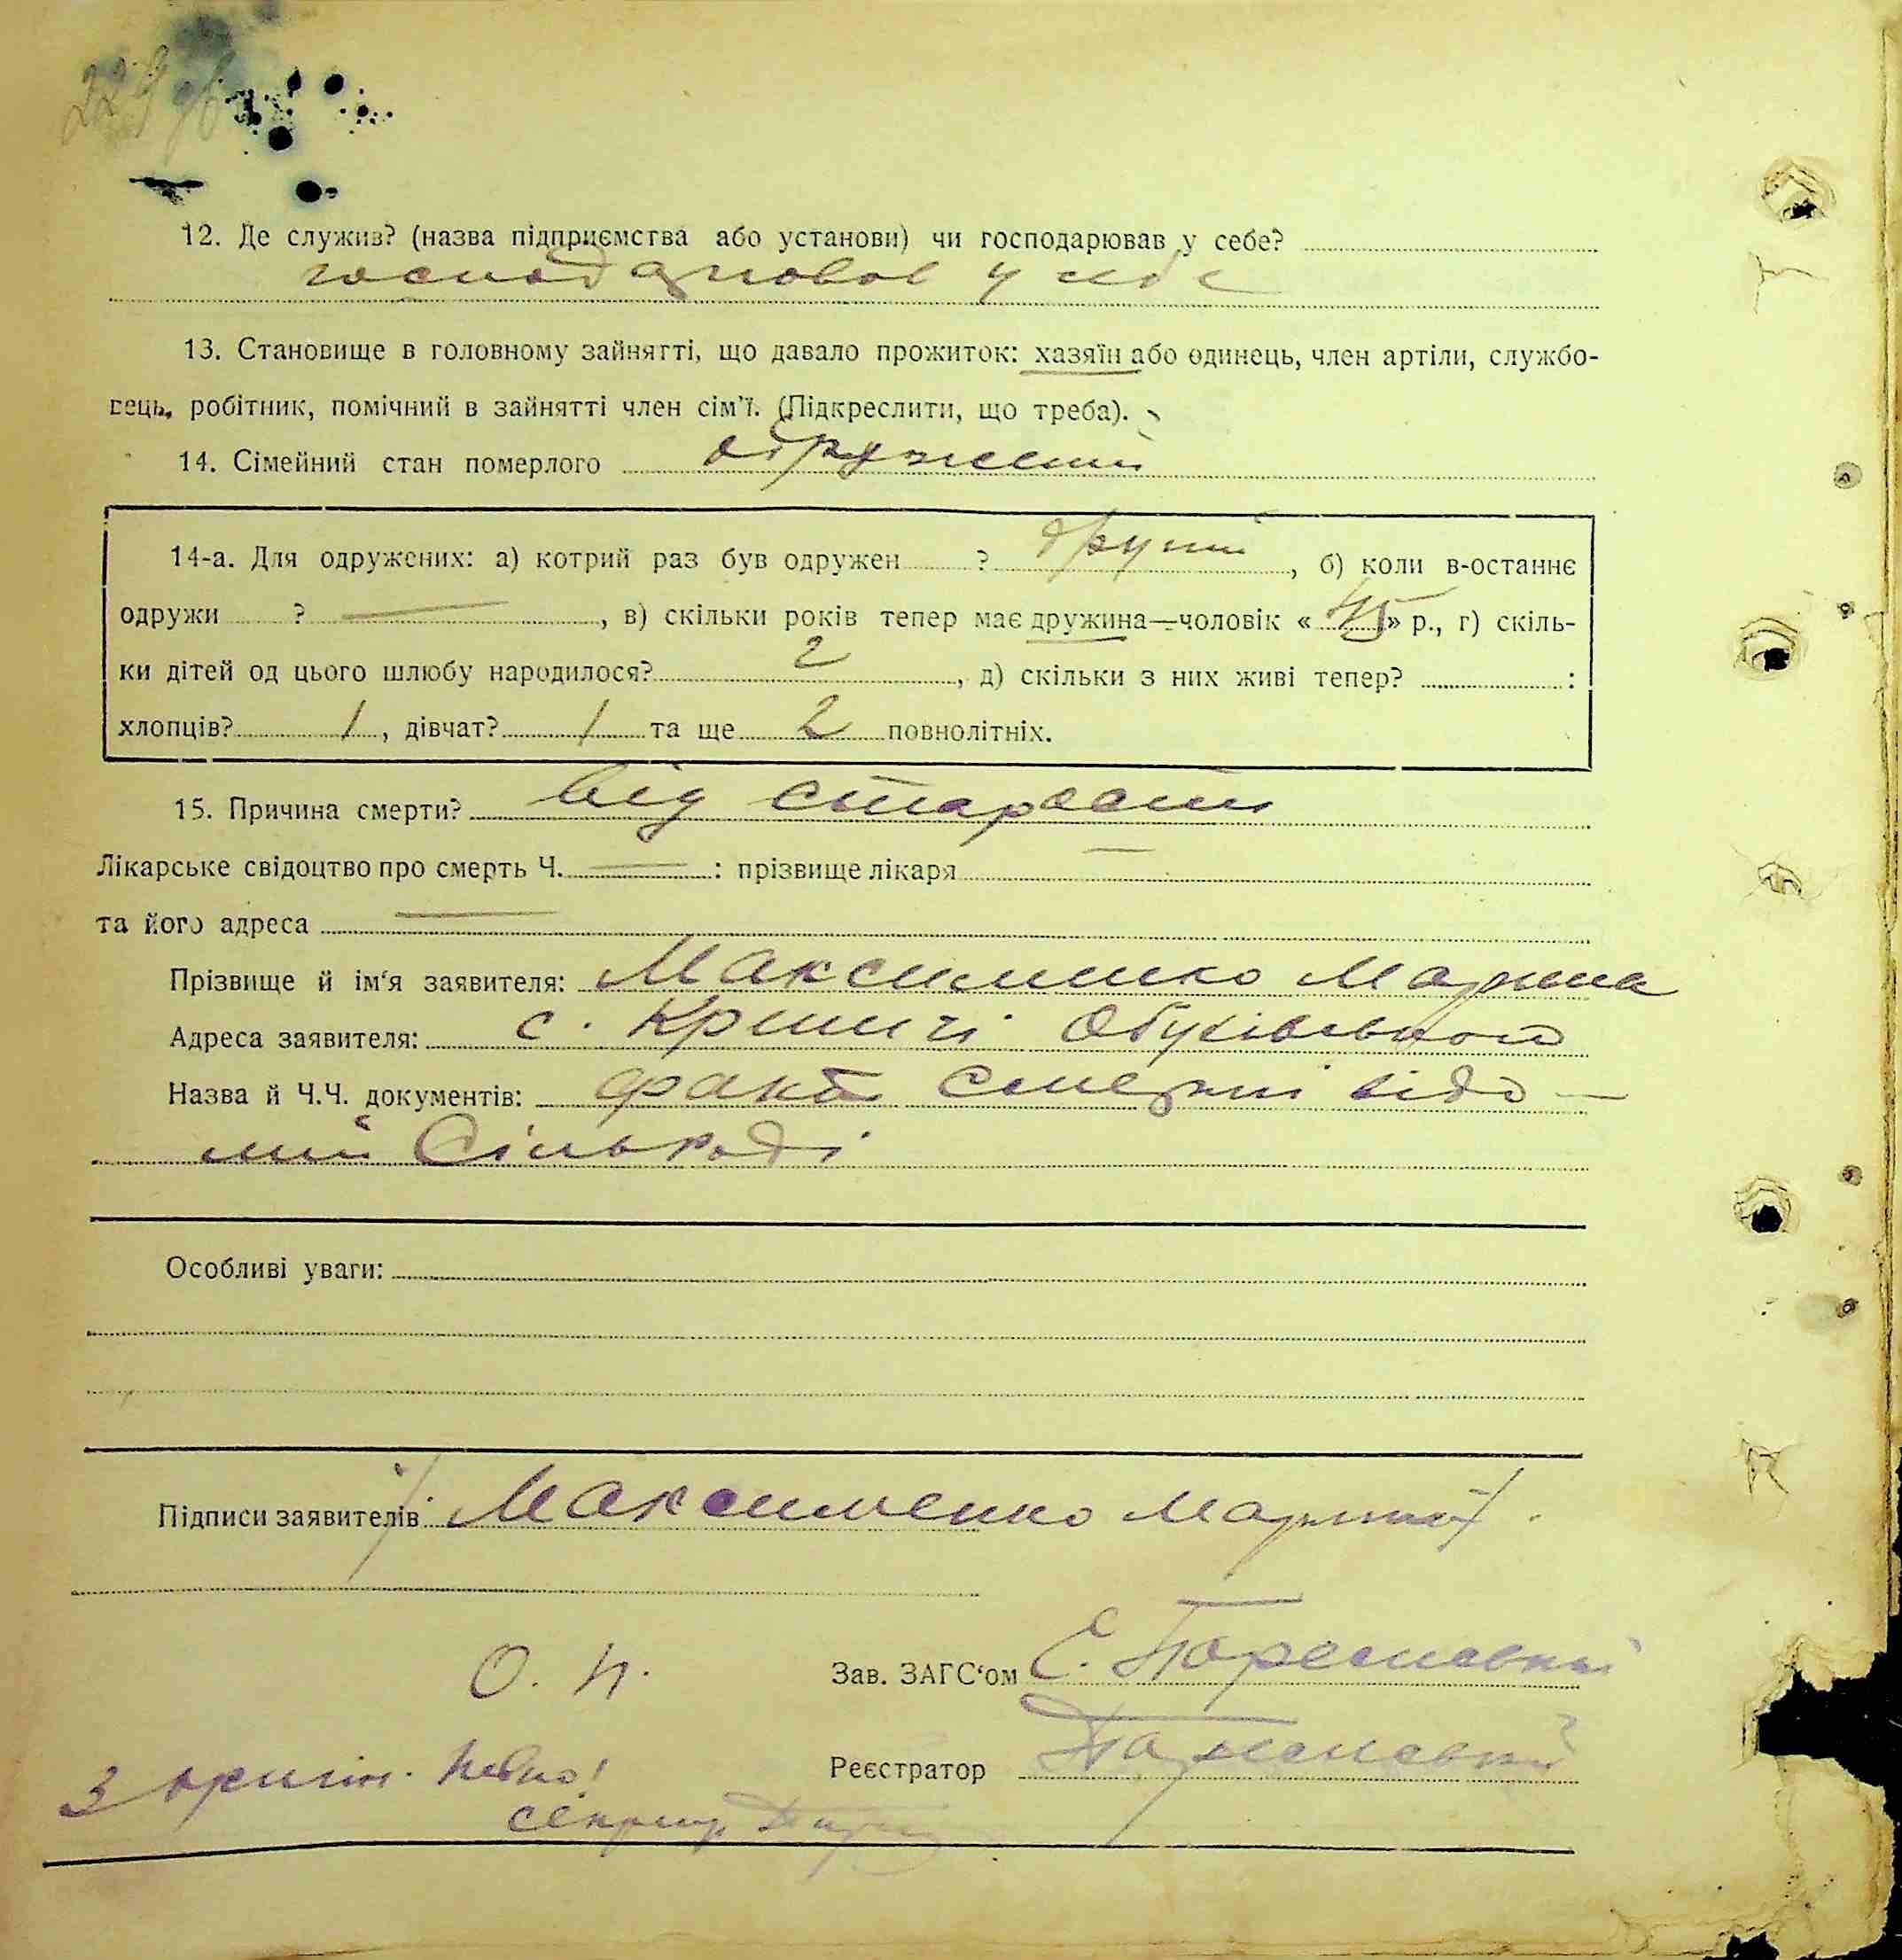 229 зв
12. Де служив? (назва підприємства або установи) чи господарював у себе?
господарював у себе
13. Становище в головному зайнятті, що давало прожиток: хазяїн або одинець, член артіли, службо-
вець, робітник, помічний в зайнятті член сім'ї. (Підкреслити, що треба).
14. Сімейний стан померлого одружений
14-а. Для одружених: а) котрий раз був одружен ? другий, б) коли в-останнє
одружи ? —, в) скільки років тепер має дружина—чоловік «45» р., г) скіль-
ки дітей од цього шлюбу народилося? 2, д) скільки з них живі тепер? :
хлопців? 1, дівчат? 1 та ще 2 повнолітніх.
15. Причина смерти? від старости
Лікарське свідоцтво про смерть Ч. — : прізвище лікаря —
та його адреса —
Прізвище й ім'я заявителя: Максименко Марина
Адреса заявителя: с. Обухівської
Назва й Ч.Ч. документів: факт смерти відо-
мий Сільраді
Особливі уваги:
Підписи заявителів: / Максименко Марина /.
О. П.
Зав. ЗАГС'ом Є.
Реєстратор
З оригін. певно!
секрет.